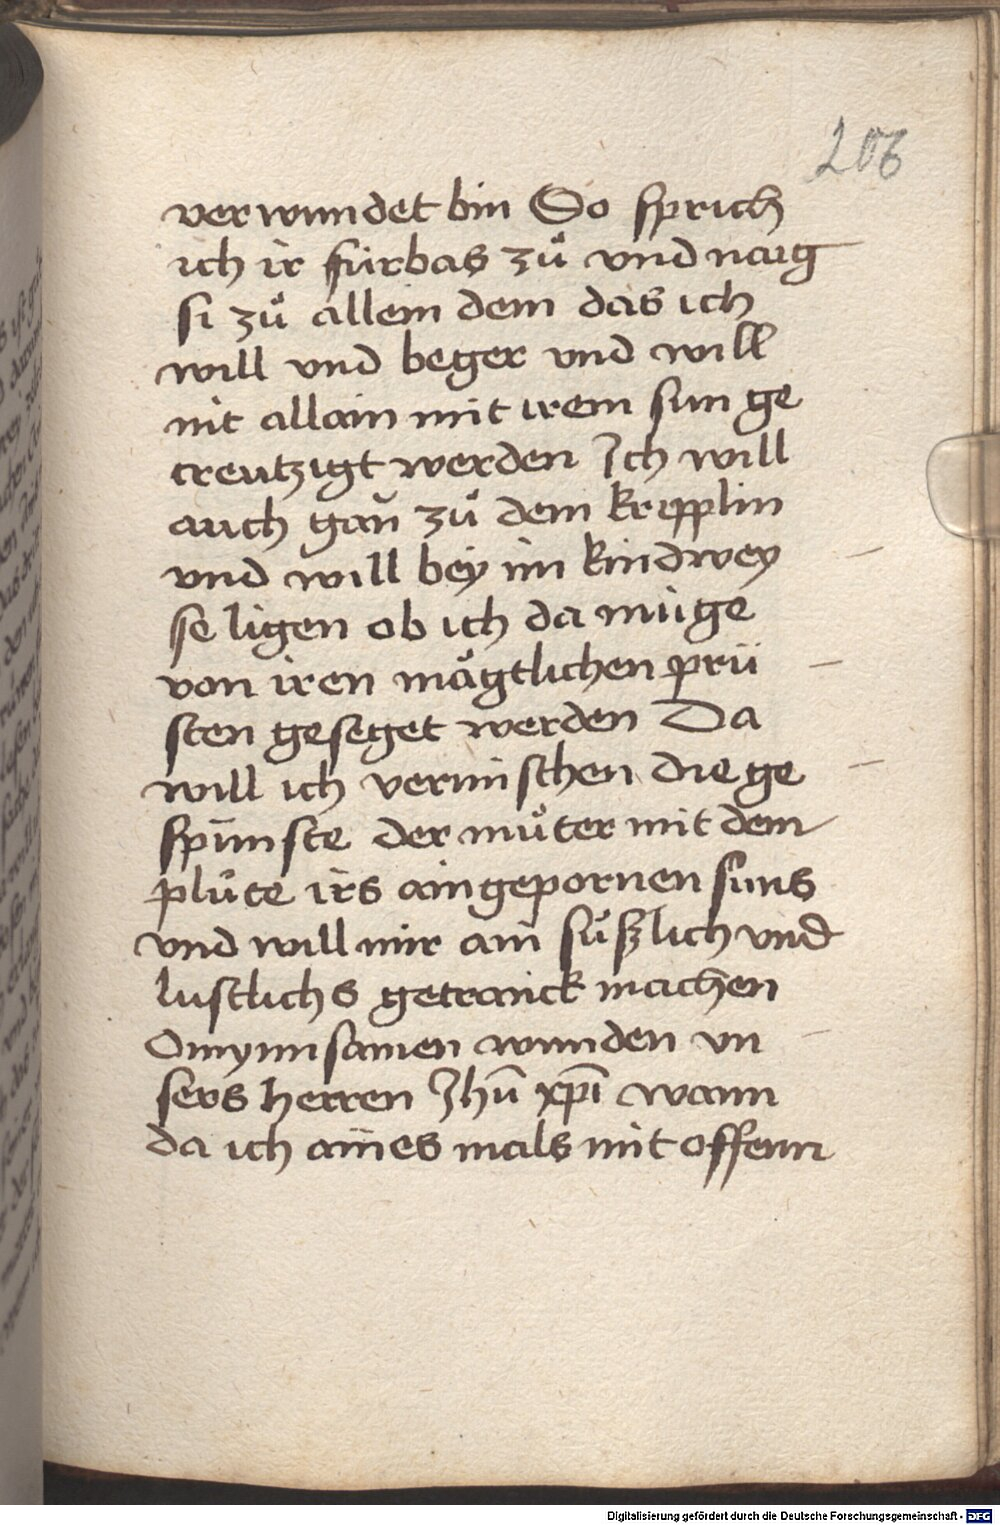 206
verwundet bin So sprich
ich ir fürbas zů vnd naig
si zů allem dem das ich
will vnd beger vnd will
nit allain mit irem sun ge
creutzigt werden Ich will
auch gan̄ zů dem kripplin
vnd will bey im kindwey
se ligen ob ich da müge
von iren mägtlichen prü
sten geseget werden Da
will ich vermischen die ge
spünste der můter mit dem
plůte irs aingepornen suns
vnd will mir ain sůszlich vnd
lustlichs getranck machen
O mynnsamen wunden vn
sers herren Jhū xp̄i wann
da ich aines mals mit offenn
Digitalisierung gefördert durch die Deutsche Forschungsgemeinschaft - DFG